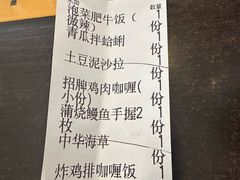 数量
泡菜肥牛饭（ 1
微辣） 份
青瓜拌蛤蜊 1
份
土豆泥沙拉 1
份
招牌鸡肉咖喱( 1
小份) 份
蒲烧鳗鱼手握2 1
枚 份
中华海草 1
份
炸鸡排咖喱饭 1